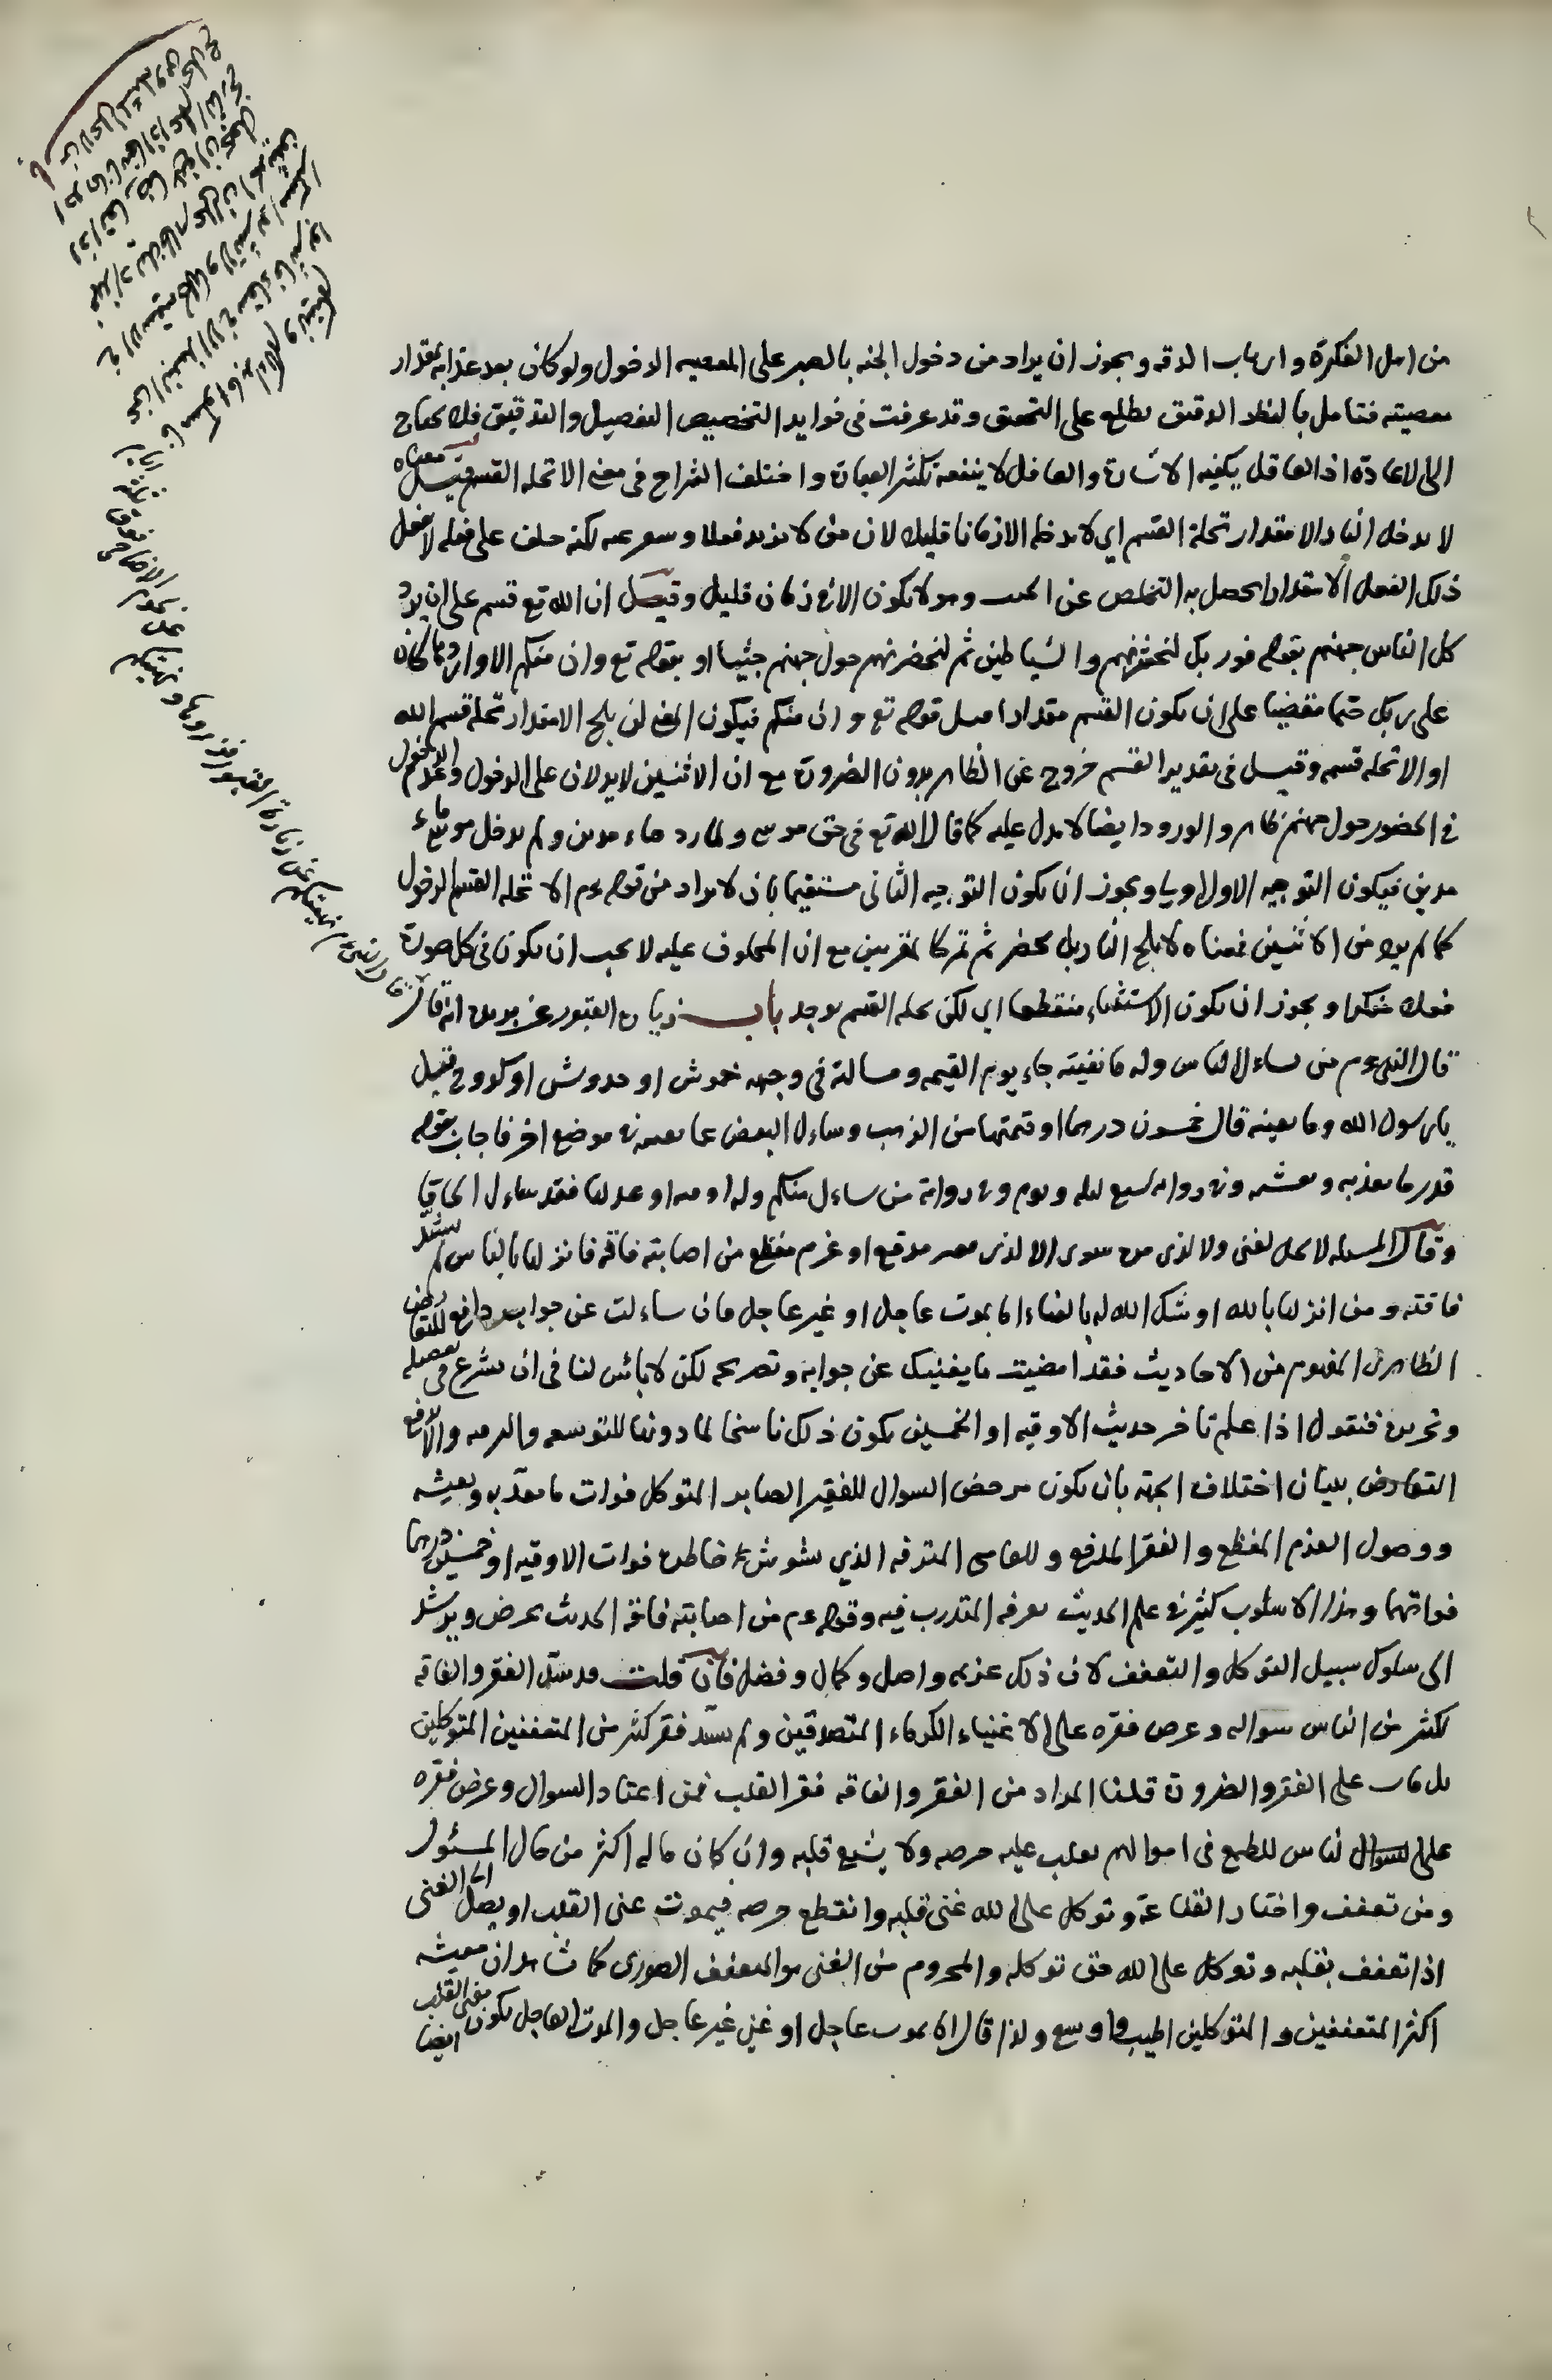 من اهل الفكرة وارباب الدقه ويجوز ان يراد من دخول الجنه بالصبر على المعصيه الدخول ولو كان بعد عذابه بمقدار
معصيته فتامل بالنظر الدقيق تطلع على التحقيق وقد عرفت فى فوايد التخصيص التفصيل والتدقيق فلا يحتاج
الى الاعادة اذ العاقل يكفيه الاشارة والغافل لا ينفعه تكثر العبارة واختلف الشراح فى معنى الا تحله القسم قيل معناه
لا يدخل النار الا مقدار تحلة القسم اي لا يدخل الا زمانا قليلا لان من لا يريد فعلا لكنه حلف على فعله لا يفعل
ذلك الفعل الا مقدارا يحصل به التخلص عن الحنث وهو لا يكون الا فى زمان قليل وقيل ان الله تع قسم على ان يرد
كل الناس جهنم بقوله فوربك لنحشرنهم والشياطين ثم لنحضرنهم حول جهنم جثيا او بقوله تع وان منكم الا واردها كان
على ربك حتما مقضيا على ان يكون القسم مقدارا قبل قوله تع وان منكم فيكون المعنى لن يلج الا مقدار تحلة قسم الله
او الا تحله قسمه وقيل فى تقدير القسم خروج عن الظاهر بدون الضرورة مع ان الاثنين لا يدلان على الدخول وعدم الدخول
فى الحضور حول جهنم ظاهر والورود ايضا لا يدل عليه كما قال الله تع فى حق موسى ولما ورد ماء مدين ولم يدخل موسى ماء
مدين فيكون التوجيه الاول اوليا ويجوز ان يكون التوجيه الثانى مستقيما بان لا يراد من قوله عم الا تحله القسم الدخول
كما لم يرد من الاثنين فمعناه لا يلج النار بل يحضر ثم تمر كالمقربين مع ان المحلوف عليه لا يجب ان يكون فى كل صورة
فعلا منكرا ويجوز ان يكون الاستثناء منقطعا اي لكن تحله القسم يوجد باب زيارة القبور عن بريدة انه قال
قال النبى عم من سائل الناس وله ما يغنيه جاء يوم القيمه ومسالته فى وجهه خموش او خدوش او كدوح فقيل
يا رسول الله وما يغنيه قال خمسون درهما او قيمتها من الذهب وسائل البعض عما يغنيه فى موضع اخر فاجاب بقوله
قدر ما يغديه ويعشيه وفى رواية شبع ليله ويوم وفى رواية من سائل منكم وله اوقيه او عدلها فقد سائل الحافا
وقال المسئله لا يحل لغنى ولا لذى مرة سوى الا لذى فقر مدقع او غرم مفظع من اصابته فاقه فانزلها بالناس لم تسد
فاقته ومن انزلها بالله اوشك الله له بالغناء اما بموت عاجل او غير عاجل فان سائلت عن جواب دافع للتعارض
الظاهرى المفهوم من الاحاديث فقد امضيت ما يغنيك عن جوابه وتصريحه لكن لا بائس لنا فى ان نشرع فى تفصيله
وتحريره فنقول اذا علم تاخر حديث الاوقيه او الخمسين يكون ذلك ناسخا لما دونها للتوسعه والرحمه والا يدفع
التعارض ببيان اختلاف الجهة بان يكون مرخص السوال للفقير الصابر المتوكل فوات ما يغديه ويعشيه
ووصول الغرم المفظع والفقر المدقع وللعاصى المترفه الذي يشوش خاطره فوات الاوقيه او خمسين درهما
فواتهما وهذا الاسلوب كثير فى علم الحديث يعرفه المتدرب فيه وقوله عم من اصابته فاقه الحديث يحرض ويرشد
الى سلوك سبيل التوكل والتعفف لان ذلك عزيمه واصل وكمال وفضل فان قلت قد تسد الفقر والفاقه
لكثير من الناس سواله وعرض فقره على الاغنياء الكرماء المتصدقين ولم يسد فقر كثير من المتعففين المتوكلين
بل مات على الفقر والضرورة قلنا المراد من الفقر والفاقه فقر القلب فمن اعتاد السوال وعرض فقره
على الناس للطمع فى اموالهم يغلب عليه حرصه ولا يشبع قلبه وان كان ماله اكثر من مال المسئول
ومن تعفف واختار القناعة وتوكل على الله غنى قلبه وانقطع حرصه فيموت غنى القلب او يصل الى الغنى
اذا تعفف بقلبه وتوكل على الله حق توكله والمحروم من الغنى هو المتعفف الصورى كما نشاهد ان معيشه
اكثر المتعففين والمتوكلين اطيب واوسع ولذا قال اما بموت عاجل او غنى غير عاجل والموت العاجل يكون مغنى القلب ايضا
قال النبى عم نهيتكم عن زيارة القبور فزوروها ونهيتكم
عن لحوم الاضاحى فوق ثلثة ايام